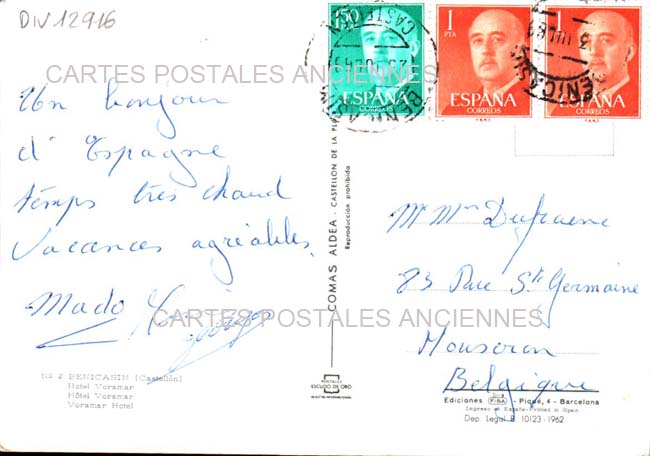 DIV 12916
CARTES POSTALES ANCIENNES
1,50
ESPAÑA
CORREOS
1
PTA
ESPAÑA
CORREOS
ESPAÑA
CORREOS
CASTELLON
BENICASIM
Un bonjour
d'Espagne
temps très chaud
Vacances agréables.
Mado
Nº 2 - BENICASIM (Castellón)
Hotel Voramar
Hôtel Voramar
Voramar Hotel
COMAS ALDEA - CASTELLON DE LA
Reproducción prohibida
POSTALES
ESCUDO DE ORO
M Mme Dufraene
83 Rue St Germaine
Mouscron
Belgique
CARTES POSTALES ANCIENNES
Ediciones FISA - Piqué, 4 - Barcelona
Impreso en España-Printed in Spain
Dep. Legal B. 10123-1962